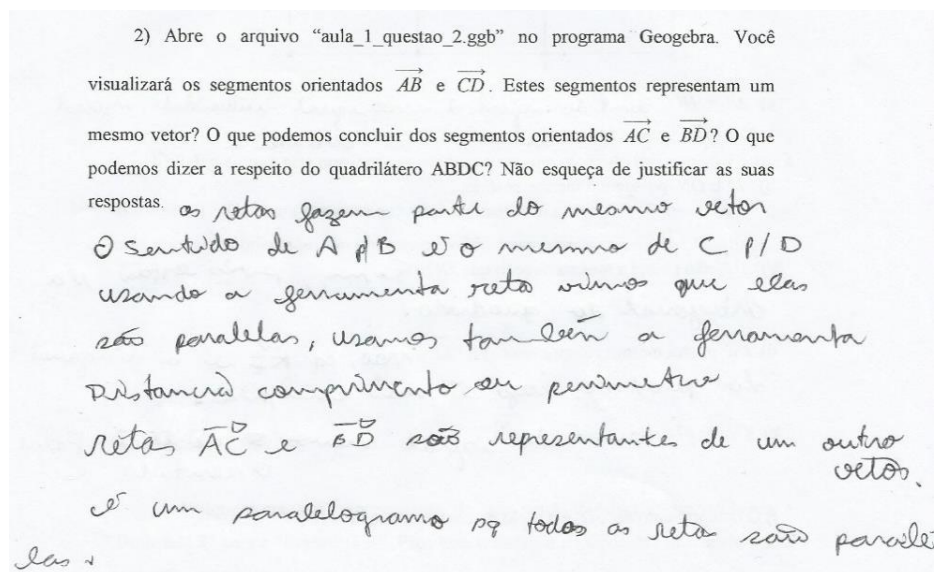 2) Abre o arquivo “aula_1_questao_2.ggb” no programa Geogebra. Você
visualizará os segmentos orientados AB e CD. Estes segmentos representam um
mesmo vetor? O que podemos concluir dos segmentos orientados AC e BD? O que
podemos dizer a respeito do quadrilátero ABDC? Não esqueça de justificar as suas
respostas.
as retas fazem parte do mesmo vetor
O sentido de A p/B é o mesmo de C p/D
usando a ferramenta reta vimos que elas
são paralelas, usamos também a ferramenta
Distancia comprimento ou perimetro
retas AC e BD são representantes de um outro
vetor.
é um paralelogramo pq todas as reta são parale
las.